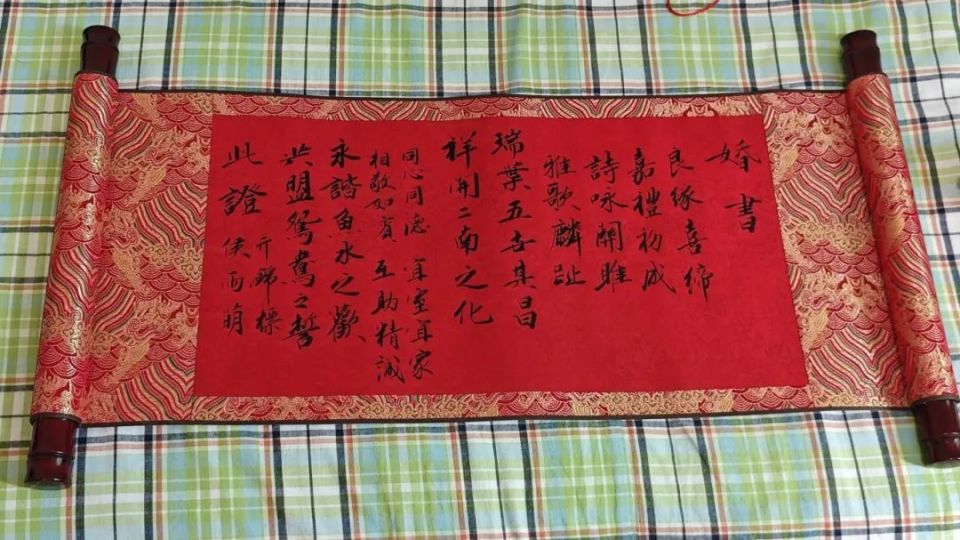 婚書
良緣喜締
嘉禮初成
詩咏關雎
雅歌麟趾
瑞葉五世其昌
祥開二南之化
同心同德 宜室宜家
相敬如賓 互助精誠
永諧魚水之歡
共盟鴛鴦之誓
此證
錦標
侯雨萌